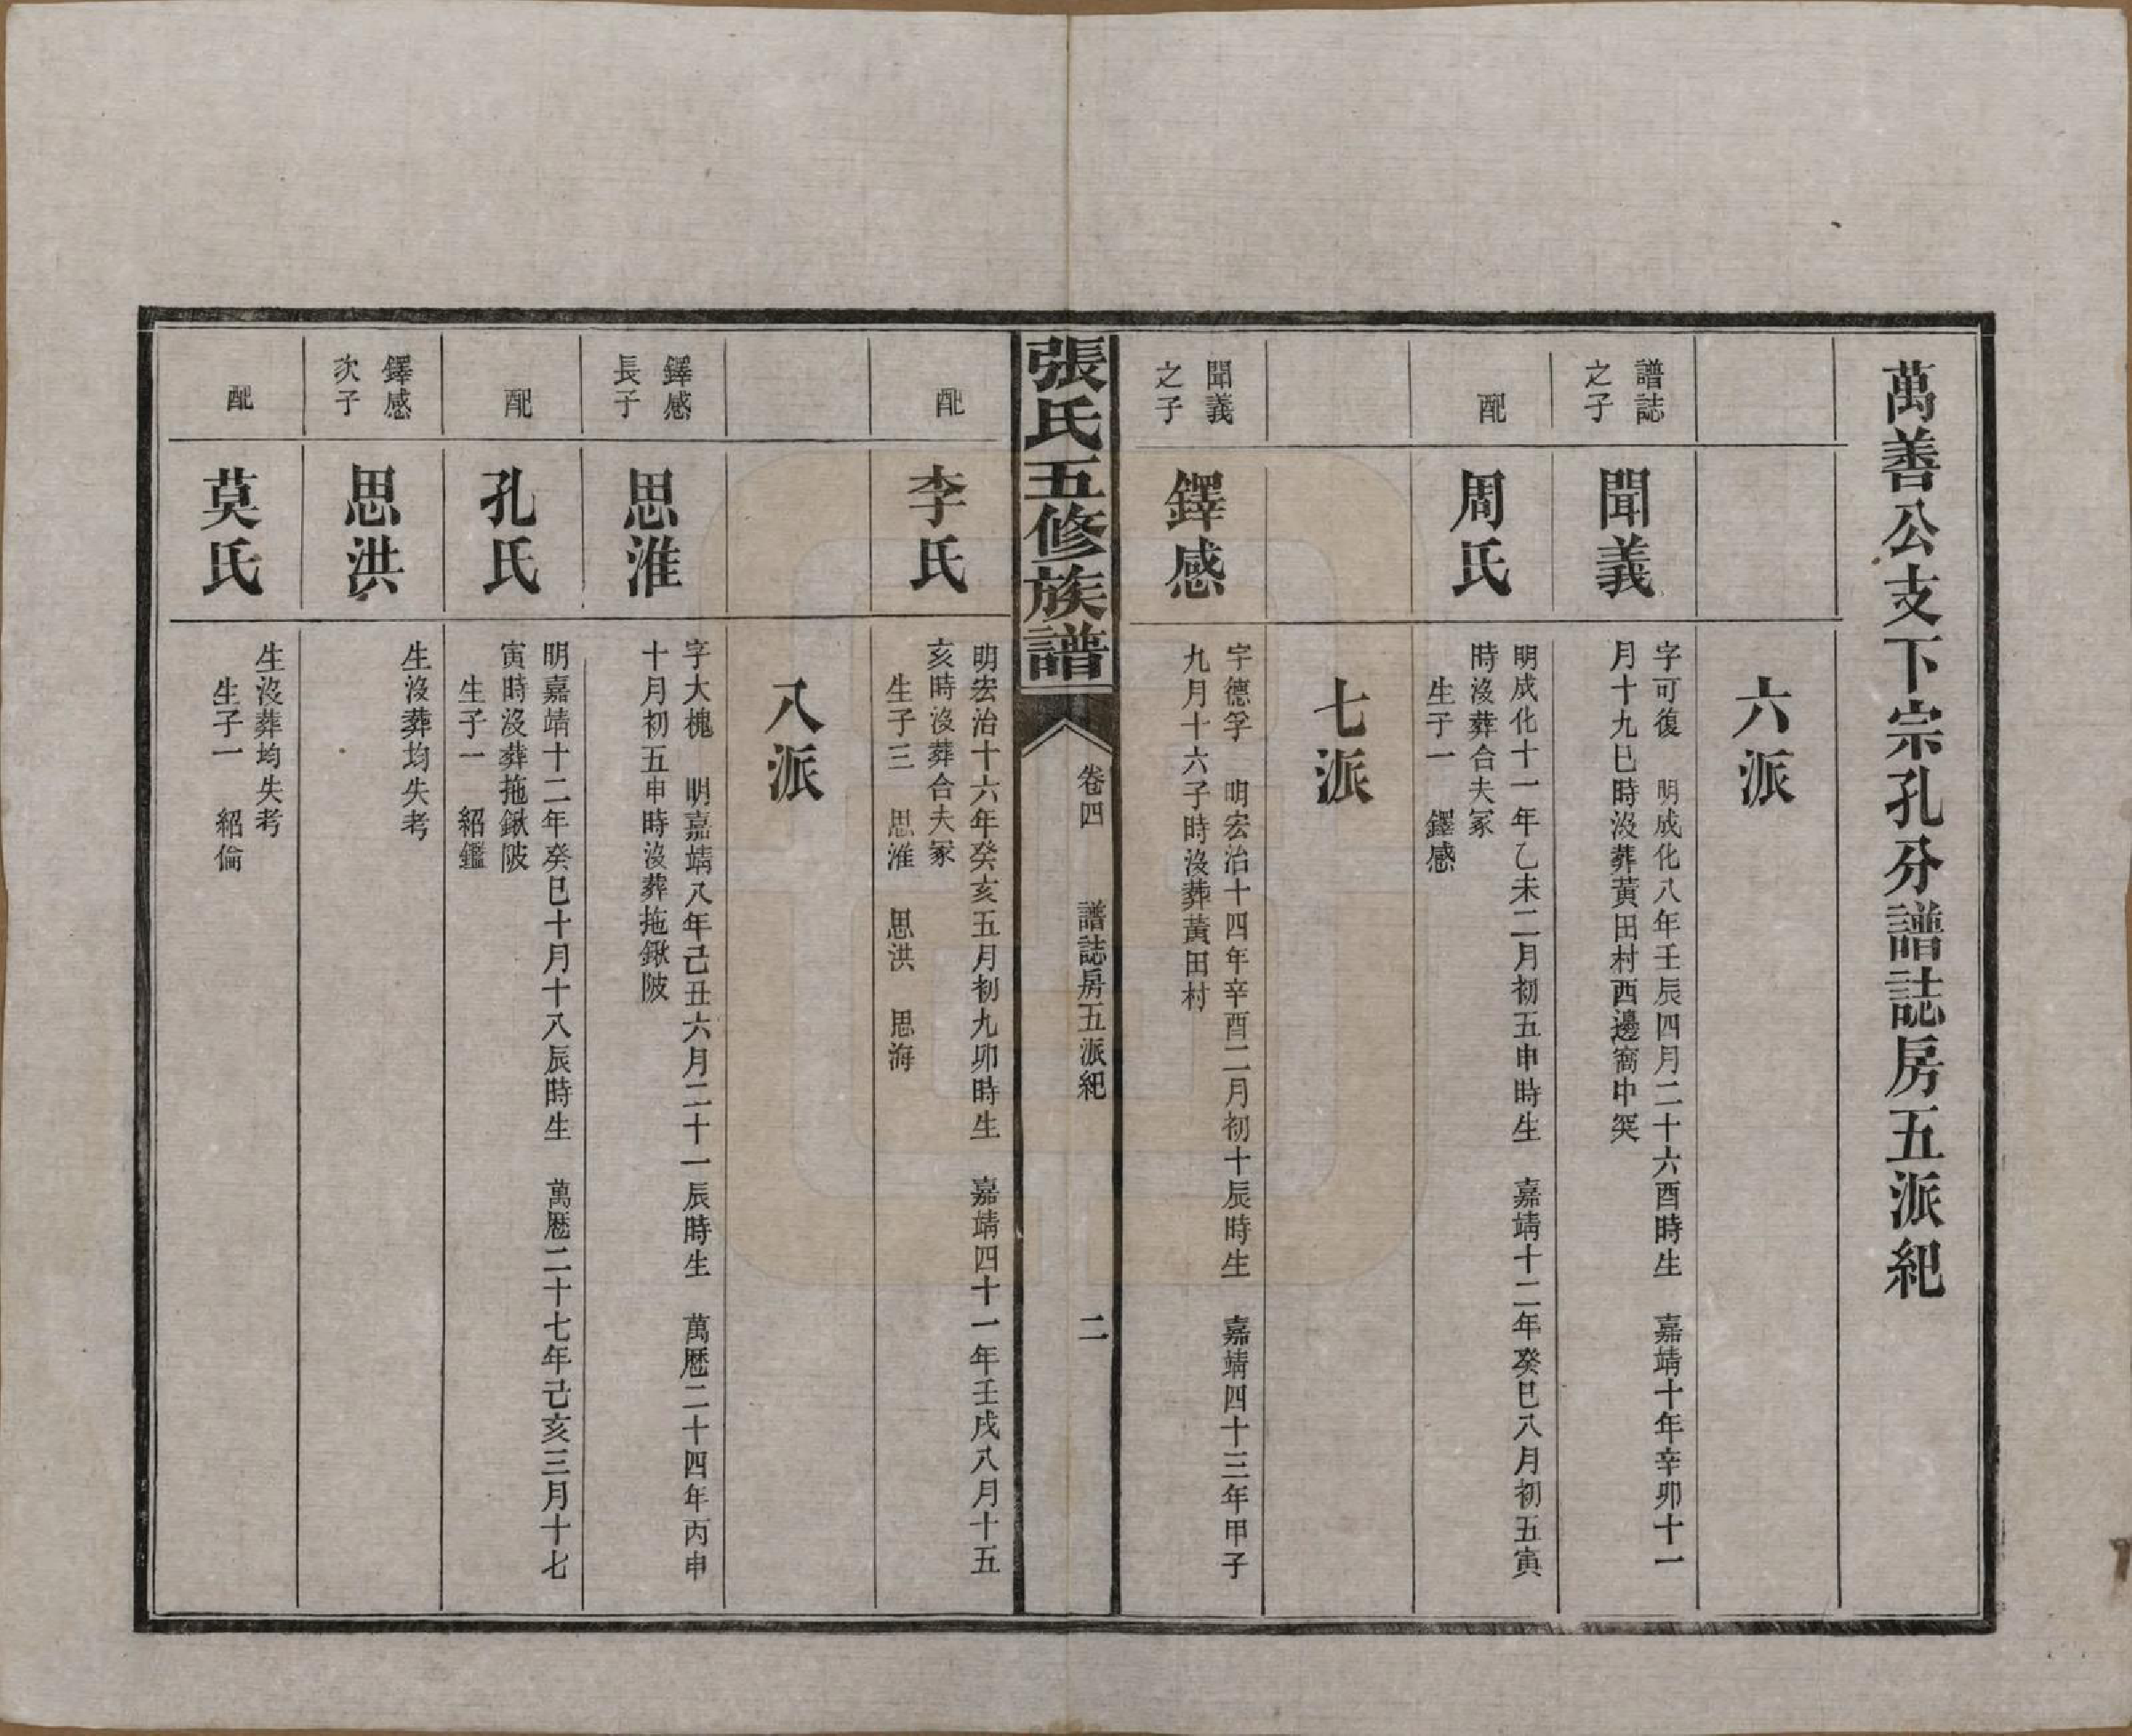 萬善公支下宗孔分譜誌房五派紀
六派
譜誌
之子
聞義
字可復　明成化八年壬辰四月二十六酉時生　嘉靖十年辛卯十一
月十九巳時沒葬黃田村西邊窩中𡘋
配
周氏
明成化十一年乙未二月初五申時生　嘉靖十二年癸巳八月初五寅
時沒葬合夫冢
生子一　鐸感
七派
聞義
之子
鐸感
字德孚　明宏治十四年辛酉二月初十辰時生　嘉靖四十三年甲子
九月十六子時沒葬黃田村
張氏五修族譜
卷四　譜誌房五派紀　二
配
李氏
明宏治十六年癸亥五月初九卯時生　嘉靖四十一年壬戌八月十五
亥時沒葬合夫冢
生子三　思淮　思洪　思海
八派
鐸感
長子
思淮
字大槐　明嘉靖八年己丑六月二十一辰時生　萬歷二十四年丙申
十月初五申時沒葬拖鍬陂
配
孔氏
明嘉靖十二年癸巳十月十八辰時生　萬歷二十七年己亥三月十七
寅時沒葬拖鍬陂
生子一　紹鑑
鐸感
次子
思洪
生沒葬均失考
配
莫氏
生沒葬均失考
生子一　紹倫